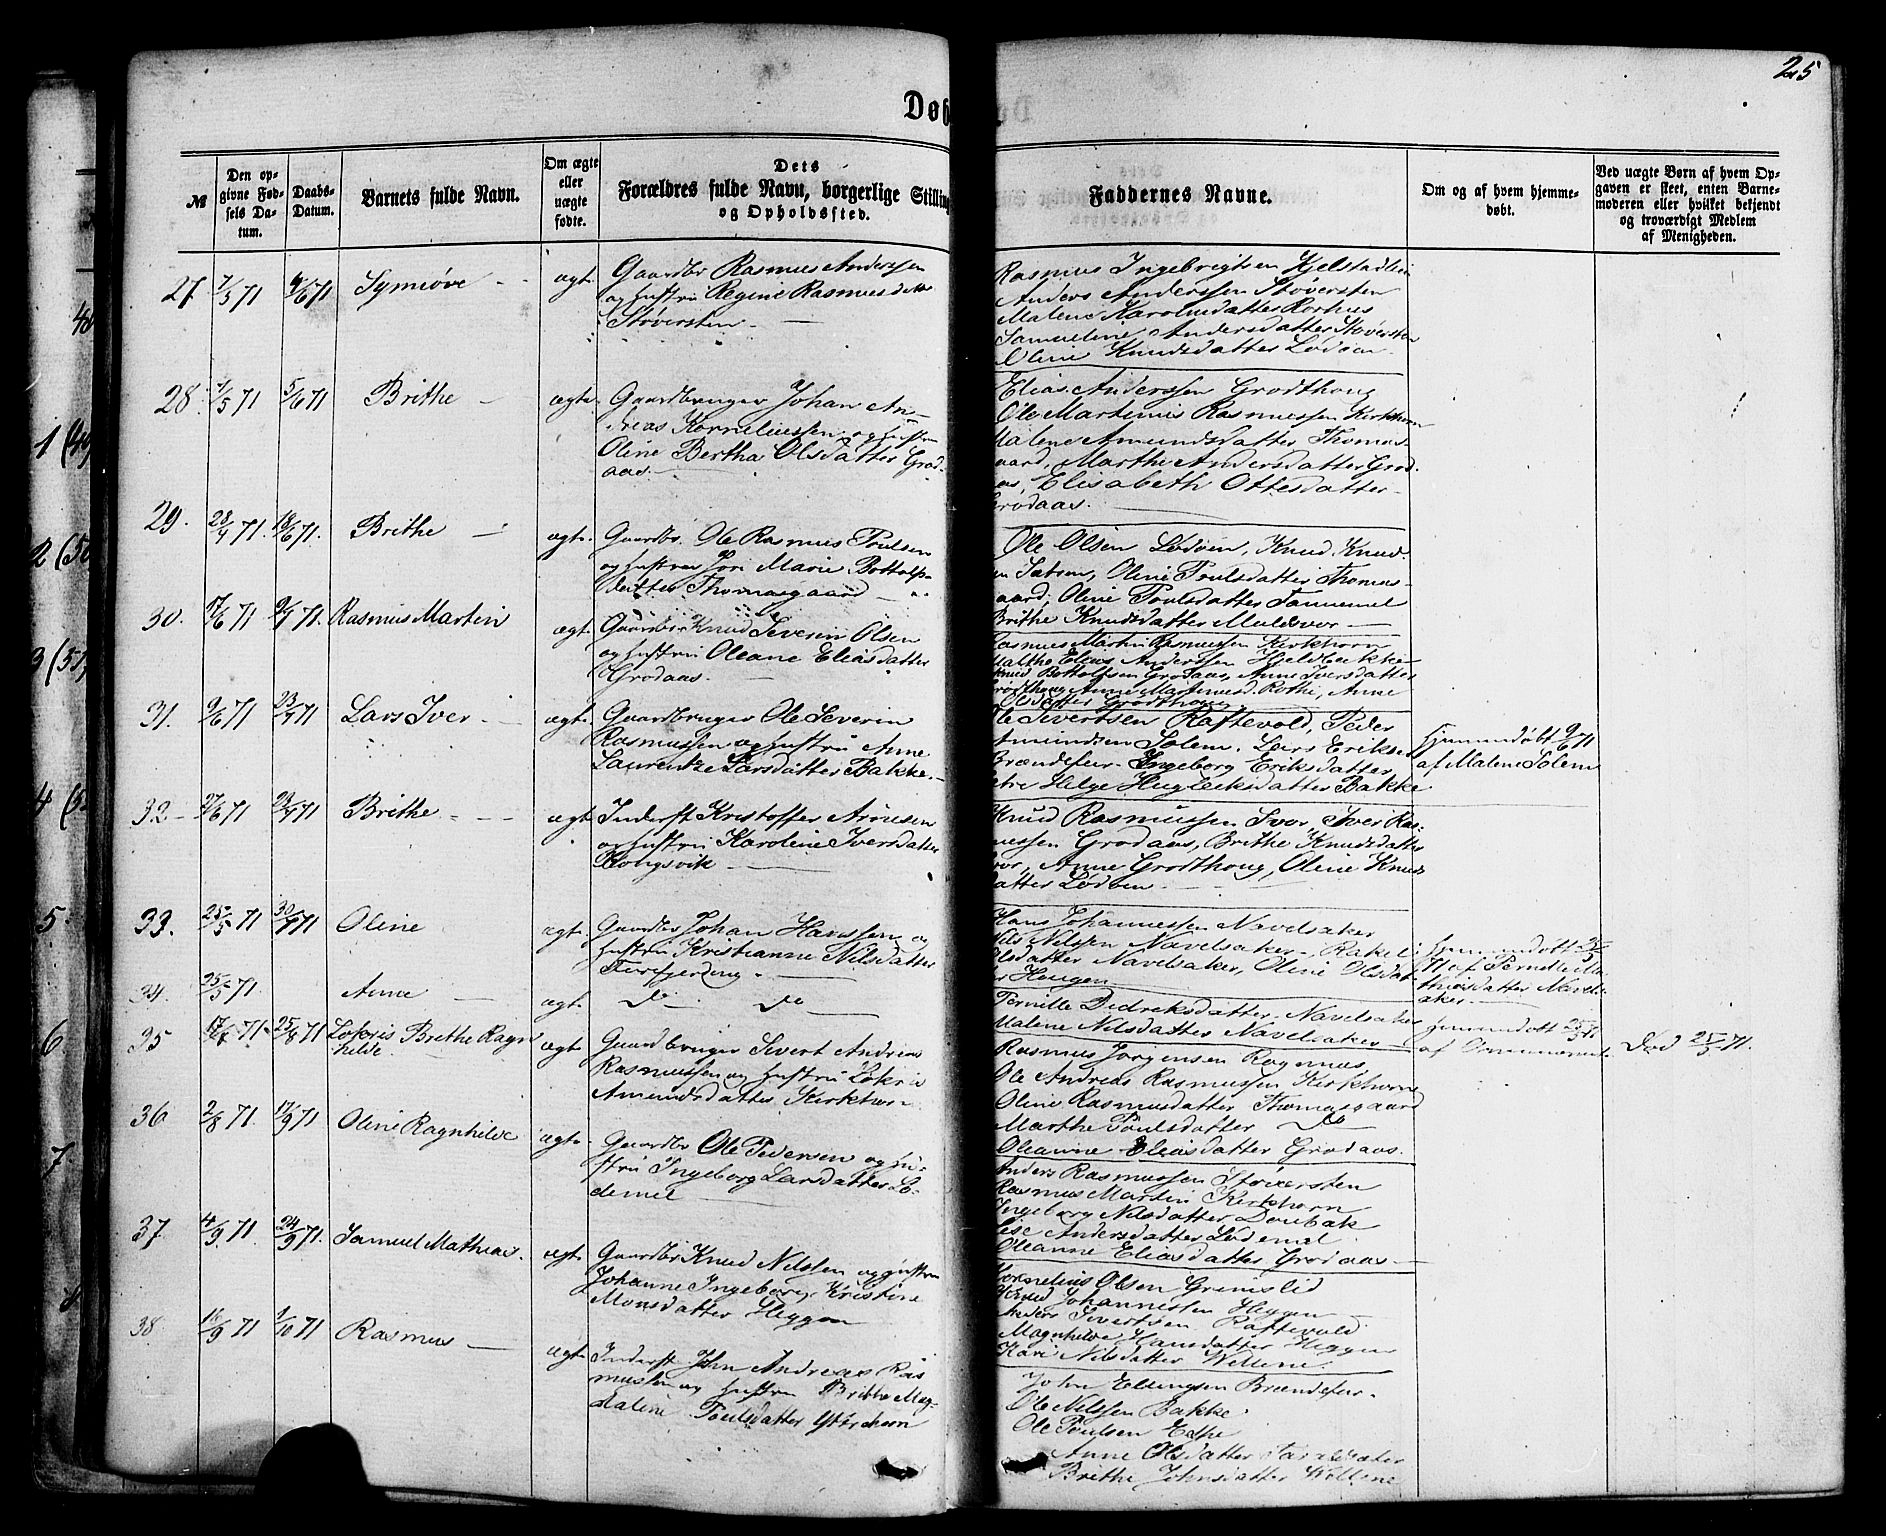 25
Døb
№
Den op-
givne Fød-
sels Da-
tum.
Daabs-
Datum.
Barnets fulde Navn.
Om ægte
eller
uægte
fødte.
Dets
Forældres fulde Navn, borgerlige Stilling
og Opholdssted.
Faddernes Navne.
Om og af hvem hjemme-
døbt.
Ved uægte Børn af hvem Op-
gaven er skeet, enten Barne-
moderen eller hvilket bekjendt
og troværdigt Medlem
af Menigheden.
27 7/5 71 4/6 71 Synnøve ægt.
Gaardbr Rasmus Anderssen
og Hustru Regine Rasmusdatter
Støversten
Rasmus Ingebrigtsen Kjelstadlien
Anders Anderssen Støversten
Malene Karolusdatter Rorhus
Samueline Andersdatter Støversten
Oline Knudsdatter Lødøen
28. 7/5 71 5/6 71 Brithe ægte
Gaardbruger Johan An-
dreas Korneliussen og Hustru
Oline Bertha Olsdatter Grod-
aas
Elias Anderssen Grodthoug
Ole Martinus Rasmussen Kirkhorn
Malene Amundsdatter Thomas-
aard, Marthe Andersdatter Grod-
as, Elisabeth Ottesdatter
Grodaas.
29. 28/4 71. 18/6 71. Brithe ægte.
Gaardbr. Ole Rasmus Poulsen
og Hustru Jori Marie Bottolfs-
datter Thomasgaard
Ole Olsen Lødøen, Knud Knud-
en Sætren, Oline Poulsdatter Thomas-
aard, Oline Poulsdatter Tannemel
Brithe Knudsdatter Muldsvor
30. 17/6 71 9/7 71. Rasmus Martin ægt.
Gaardbr Knud Severin Olsen
og Hustru Oleane Eliasdatter
Grodaas.
Rasmus Martin Rasmussen Kirkhorn
Malthe Elias Anderssen Hjeldbakke
Knud Bottolfsen Grodaas, Anne Iversdatter
Grodthoug Anne Martinusd. Rothe, Anne
Olsdatter Grodthoug
31. 9/6 71 23/7 71 Lars Iver ægt.
Gaardbruger Ole Severin
Rasmussen og Hustru Anne
Laurentze Larsdatter Bakke
Ole Sivertsen Raftevold, Peder
Amundsen Solem. Lars Eriksen
Brændefur. Ingeborg Eriksdatter
Helge Hugleiksdatter Bakke
Hjemmedøbt 9/6 71
af Malene Solem
32 27/6 71 23/7 71 Brithe ægt.
Inderst Kristoffer Aronsen
og Hustru Karoline Iversdatter
Kongsvik
Knud Rasmussen Svor, Iver Ras-
mussen Grodaas, Brithe Knudsdatter
Svor, Anne Grodthoug, Oline Knuds
datter Lødøen
33. 25/5 71 30/7 71 Oline ægt.
Gaardbr Johan Hanssen og
Hustru Kristianne Nilsdatter
Torefjerding
Hans Johannessen Navelsaker
Nils Nilssen Navelsaker, Rakel
Olsdatter Navelsaker, Oline Olsdat
er Haugen
Hjemmedøbt 25/5
71 af Pernille Ma-
thiasdatter Navels-
aker
34. 25/5 71 Anne ægt.
Do Do
Pernille Didriksdatter Navelsaker
Malene Nilsdatter Navelsaker
Hjemmedøbt 25/5 71
af
Død 25/5 71.
35 17/7 71 25/8 71 Lokris Brithe Ragn
hilde ægt.
Gaardbruger Sivert Andreas
Rasmussen og Hustru Lokris
Amundsdatter Kirkhorn
Rasmus Jørgensen Ragnnas
Ole Andreas Rasmussen Kirkhorn
Oline Rasmusdatter Thomasgaard
Marthe Poulsdatter Do
Oleanne Eliasdatter Grodaas.
36 2/8 71. 17/9 71 Oline Ragnhilde ægt.
Gaardbr Ole Pedersen og Hu-
stru Ingeborg Larsdatter Lø-
demel
Anders Rasmussen Støversten
Rasmus Martin Kirkhorn
Ingeborg Nilsdatter Doubak
Lise Andersdatter Lødemel
Oleanne Eliasdatter Grodaas
37. 4/9 71. 24/9 71. Samuel Mathias ægt.
Gaardbr Knud Nilssen og Hustru
Johanne Ingeborg Kristine
Monsdatter Heggen
Kornelius Olsen Grimslid
Knud Johannessen Heggen
Peder Sivertsen Raftevold
Magnhilde Hansdatter Heggen
Kari Nilsdatter Wellene.
38 16/9 71 1/10 71 Rasmus ægt.
Inderst John Andreas Ras
mussen og Hustru Brithe Mag-
dalene Poulsdatter Ytrehorn
John Ellingsen Brændefur.
Ole Nilssen Bakke
Ole Poulsen Eghe
Anne Olsdatter
Brithe Johnsdatter Wellene
1 (49)
2 (50
3 (51)
4 (52
5
6
7